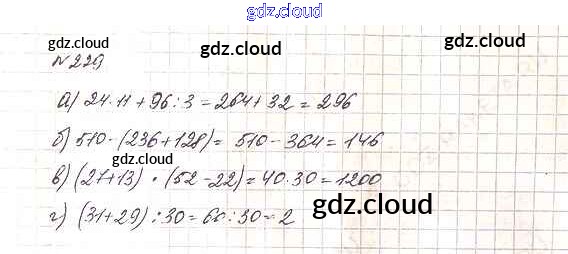 gdz.cloud
gdz.cloud gdz.cloud
№229
а) 24·11+96:3=264+32=296
б) 510-(236+128)= 510-364=146
gdz.cloud
в) (27+13)·(52-22)=40·30=1200
г) (31+29):30=60:30=2
gdz.cloud